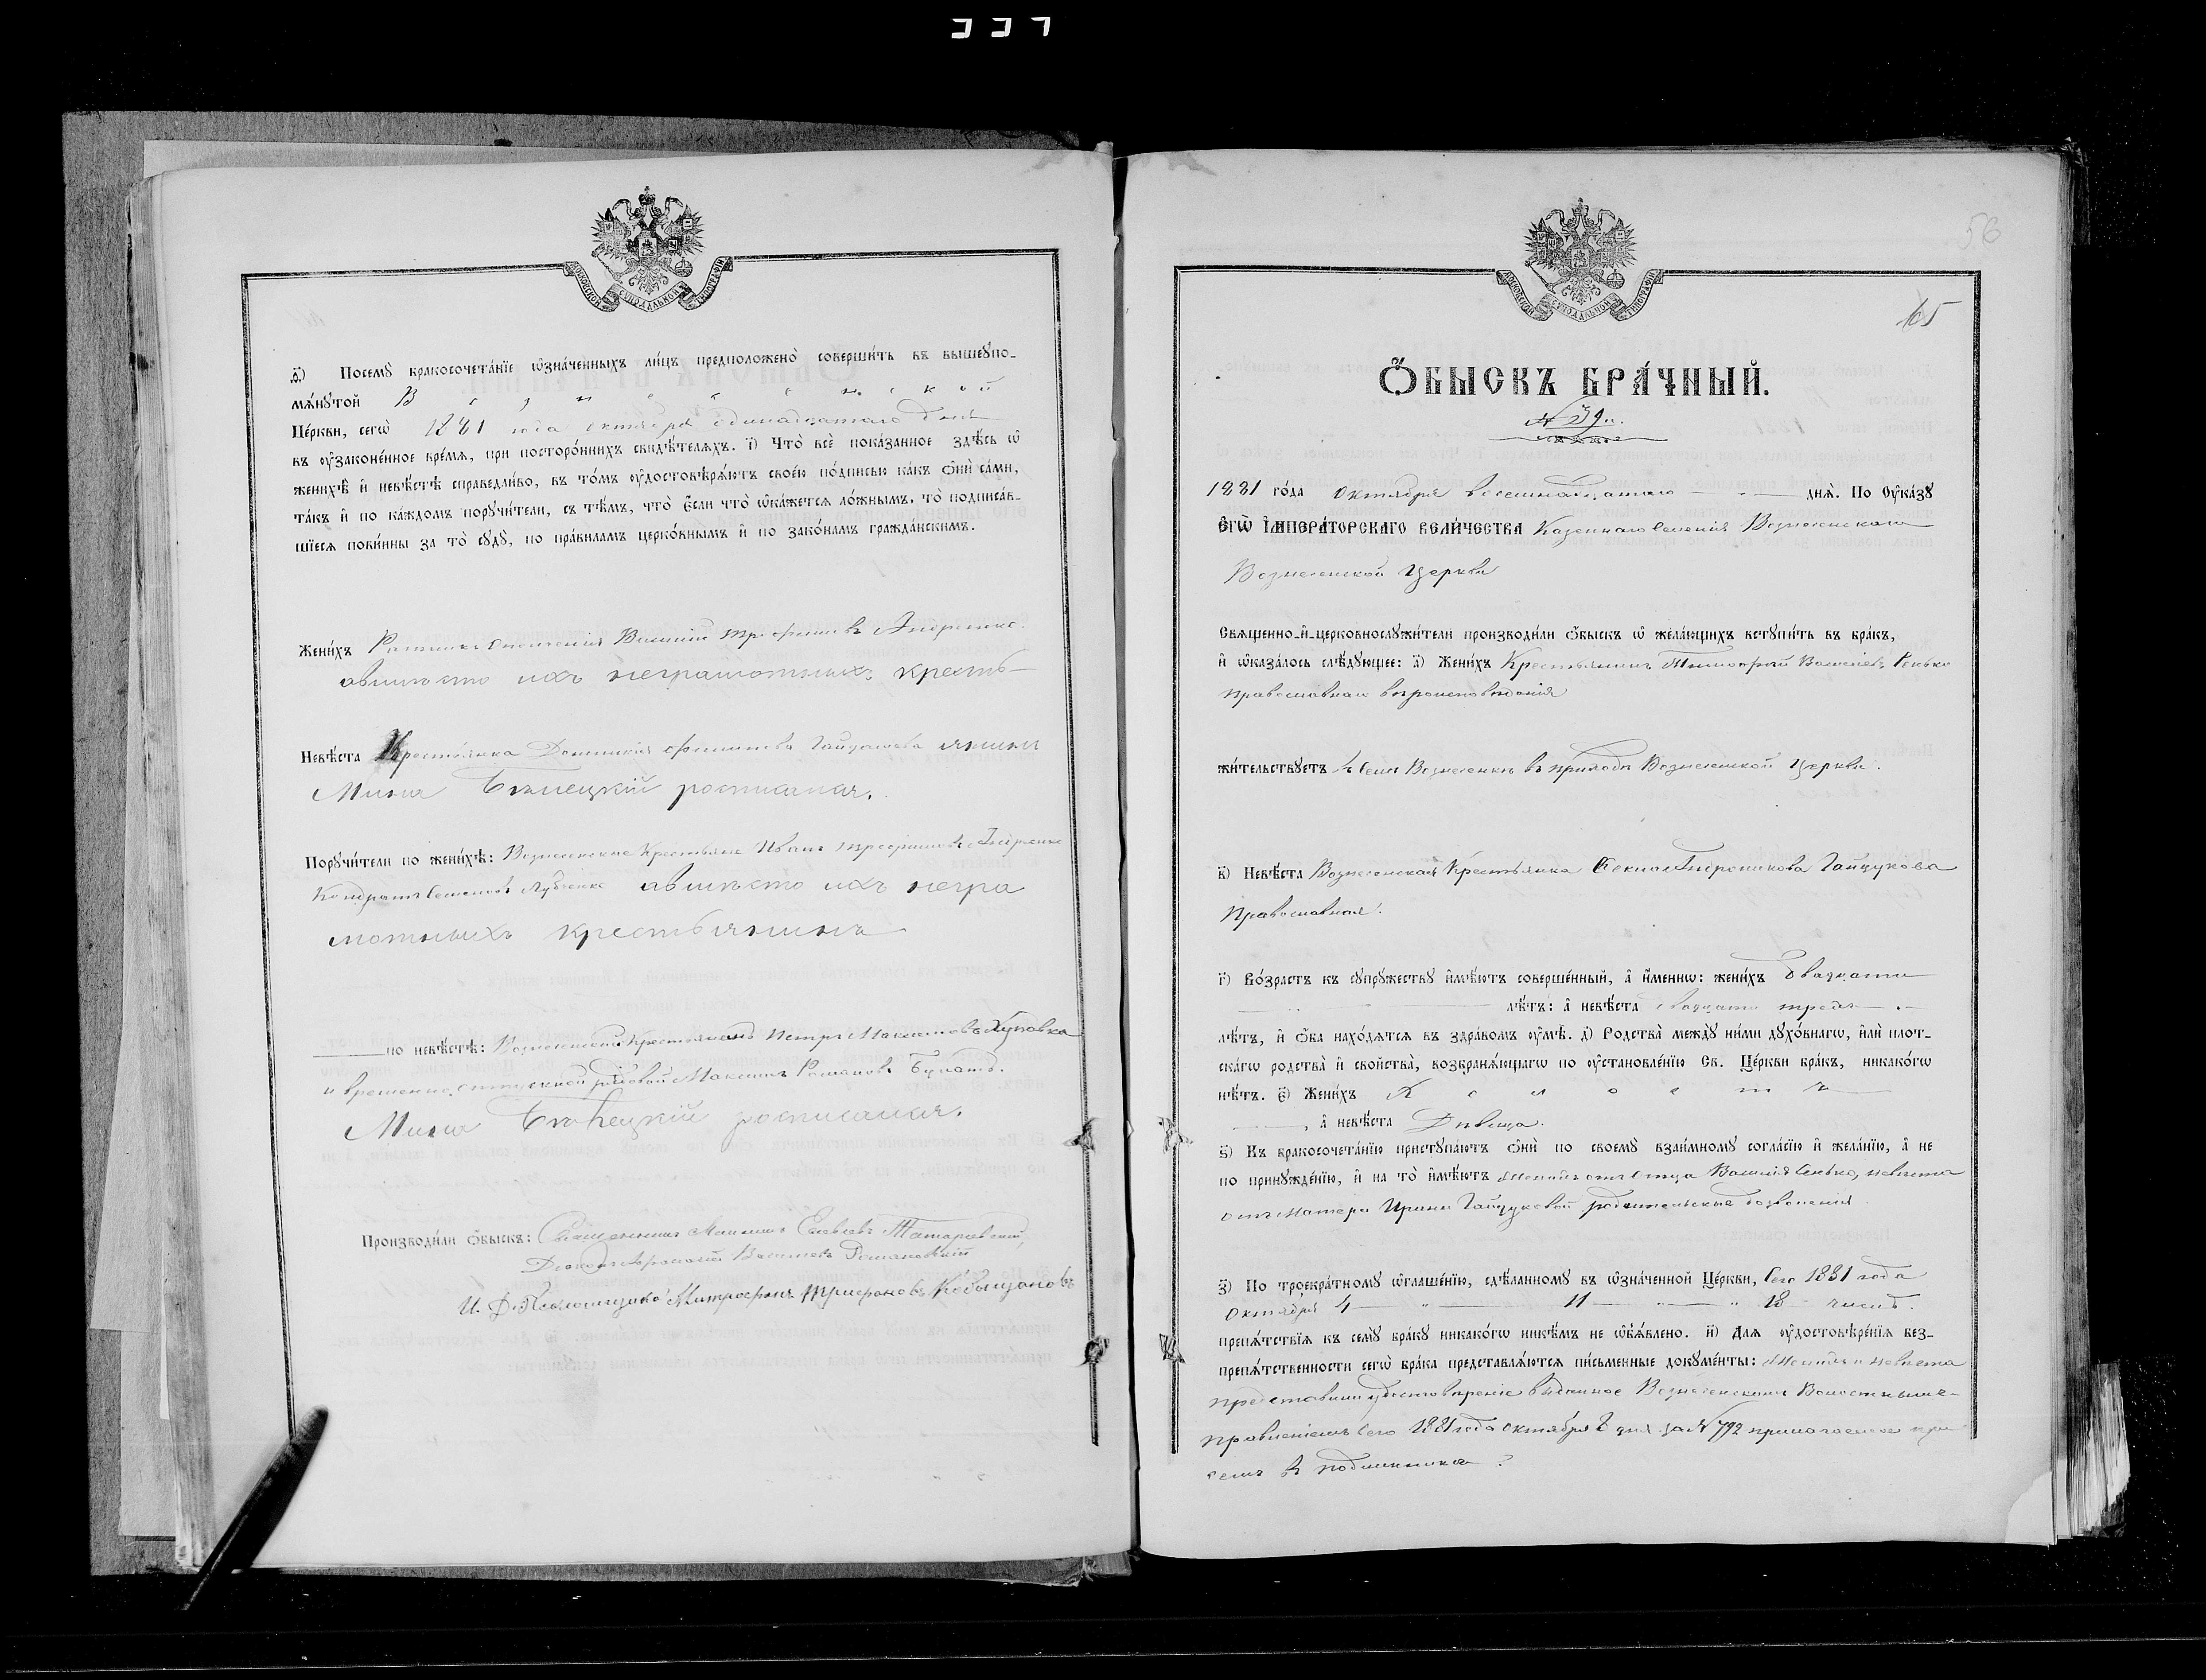 337
МОСКОВСКОЙ СѴНОДАЛЬНОЙ ТИПОГРАФІИ
д҃) Посемꙋ̀ бракосочета́нїе ѡ҆зна́ченныхъ ли́цъ предположено̀ соверши́ть въ вышеꙋпо-
мѧ́нꙋтой В о з н е с е н с к о й
Це́ркви, сегѡ̀ 1881 года октября одинадцатаго дня
въ ᲂу҆законе́нное вре́мѧ, при посторо́ннихъ свидѣ́телѧхъ. і҃) Что̀ всѐ пока́занное здѣ́сь ѡ҆
женихѣ̀ и҆ невѣ́стѣ справедли́во, въ то́мъ ᲂу҆достовѣрѧ́ютъ свое́ю по́дписью ка́къ ѻ҆нѝ са́ми,
та́къ и҆ по ка́ждомъ порꙋчи́тели, съ тѣ́мъ, что̀ є҆́сли что̀ ѡ҆ка́жетсѧ ло́жнымъ, то̀ подписа́в-
шїесѧ пови́нны за то̀ сꙋдꙋ̀, по пра́виламъ церко́внымъ и҆ по зако́намъ гражда́нскимъ.
Жени́хъ Ратникъ ополченія Василій Трофимовъ Андренко
авместо ихъ неграмотныхъ кресть-
Невѣ́ста Крестьянка Домникія Филипова янинъ
Мина росписался.
Порꙋчи́тели по женихѣ̀: Вознесенские Крестьяне Иванъ Трофимовъ Андренко
Кондратъ Семеновъ авместо ихъ негра
мотныхъ крестьянинъ
по невѣ́стѣ: Вознесенский Крестьянинъ Петръ
и временно отпускной рядовой Максимъ Романовъ
Мина росписался.
Производи́ли ѻ҆́быскъ: Священникъ Татаревский,
Діаконъ Василевъ Романовскій
И. Д. Псаломщика Митрофанъ Трифоновъ Кобыщановъ
56
МОСКОВСКОЙ СѴНОДАЛЬНОЙ ТИПОГРАФІИ
65
Ѻ҆́БЫСКЪ БРА́ЧНЫЙ.
№ 39й.
1881 го́да Октября восемнадцатаго днѧ̀. По Оу҆ка́зꙋ
Є҆гѡ̀ І҆мпера́торскагѡ Вели́чества Казеннаго Селенія Вознесенскаго
Вознесенской Церкви
Свѧще́нно-и҆-церковнослꙋжи́тели производи́ли ѻ҆́быскъ ѡ҆ жела́ющихъ встꙋпи́ть въ бра́къ,
и҆ ѡ҆каза́лось слѣ́дꙋющее: а҃) Жени́хъ Крестьянинъ Тимофей Василіевъ Сенько
православнаго вероисповеданія
жи́тельствꙋетъ въ Селе Вознесенке въ приходе Вознесенской Церкви.
в҃) Невѣ́ста Вознесенская Крестьянка Андроникова Гайдукова
Православная.
г҃) Во́зрастъ къ сꙋпрꙋ́жествꙋ и҆мѣ́ютъ соверше́нный, а҆ и҆́меннѡ: жени́хъ двадцати
лѣ́тъ: а҆ невѣ́ста двадцати трехъ
лѣ́тъ, и҆ ѻ҆́ба нахо́дѧтсѧ въ здра́вомъ ᲂу҆мѣ̀. д҃) Родства̀ междꙋ̀ ни́ми дꙋхо́внагѡ, и҆лѝ пло́т-
скагѡ родства̀ и҆ сво́йства, возбранѧ́ющагѡ по ᲂу҆становле́нїю Св. Це́ркви бра́къ, никако́гѡ
нѣ́тъ. є҃) Жени́хъ Х о л о с т ъ
, а҆ невѣ́ста Девица.
ѕ҃) Къ бракосочета́нїю пристꙋпа́ютъ ѻ҆нѝ по своемꙋ̀ взаи́мномꙋ согла́сїю и҆ жела́нїю, а҆ не
по принꙋжде́нїю, и҆ на то̀ и҆мѣ́ютъ Женихъ отъ отца Василія Сенько, невеста
отъ Матери Ирины Гайдуковой родительские дозволенія
з҃) По троекра́тномꙋ ѡ҆глаше́нїю, сдѣ́ланномꙋ въ ѡ҆зна́ченной Це́ркви, Сего 1881 года
Октября 4 " 11 " " 18 числъ.
препѧ́тствїѧ къ семꙋ̀ бра́кꙋ никако́гѡ никѣ́мъ не ѡ҆б̾ѧ́влено. и҃) Длѧ ᲂу҆достовѣре́нїѧ без-
препѧ́тственности сегѡ̀ бра́ка представлѧ́ютсѧ пи́сьменные докꙋме́нты: Женихъ и невеста
представили удостоверение выданное Вознесенскимъ Волостнымъ
правленіемъ Сего 1881 года октября 8 дня за № 792 прилагаемое при
семъ въ подлиннике